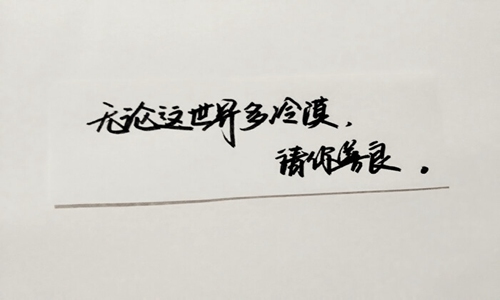 无论这世界多冷漠,
请你善良。